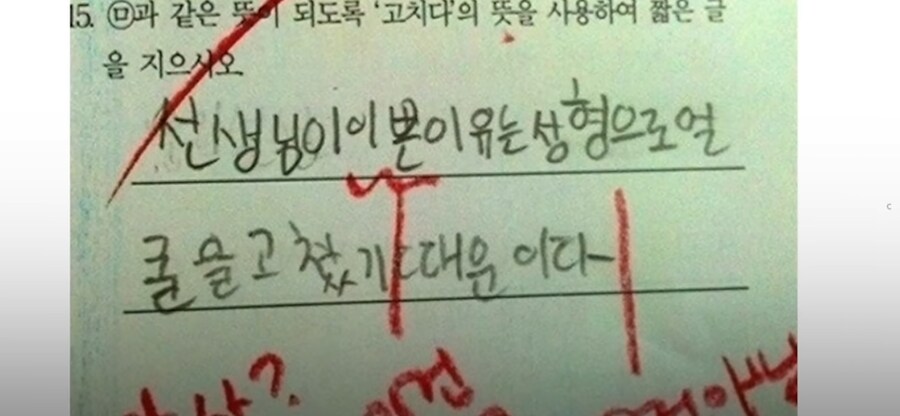 15. ㉤과 같은 뜻이 되도록 '고치다'의 뜻을 사용하여 짧은 글
을 지으시오.
선생님이이쁜이유는성형으로얼
굴을고쳤기때문이다
?